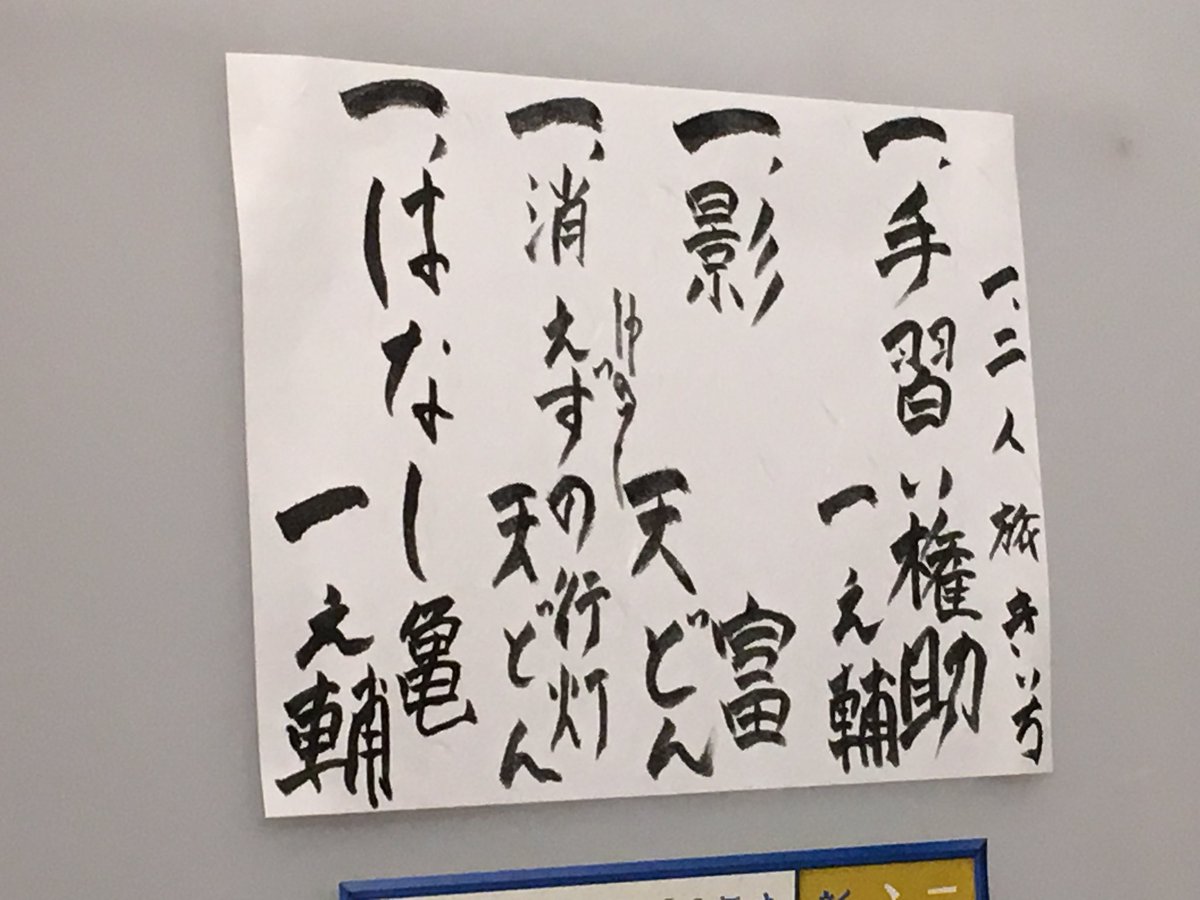 一、二人旅 きいち
一、手習い権助
一之輔
一、影 富
天どん
一、消えずの行灯
天どん
一、はなし亀
一之輔